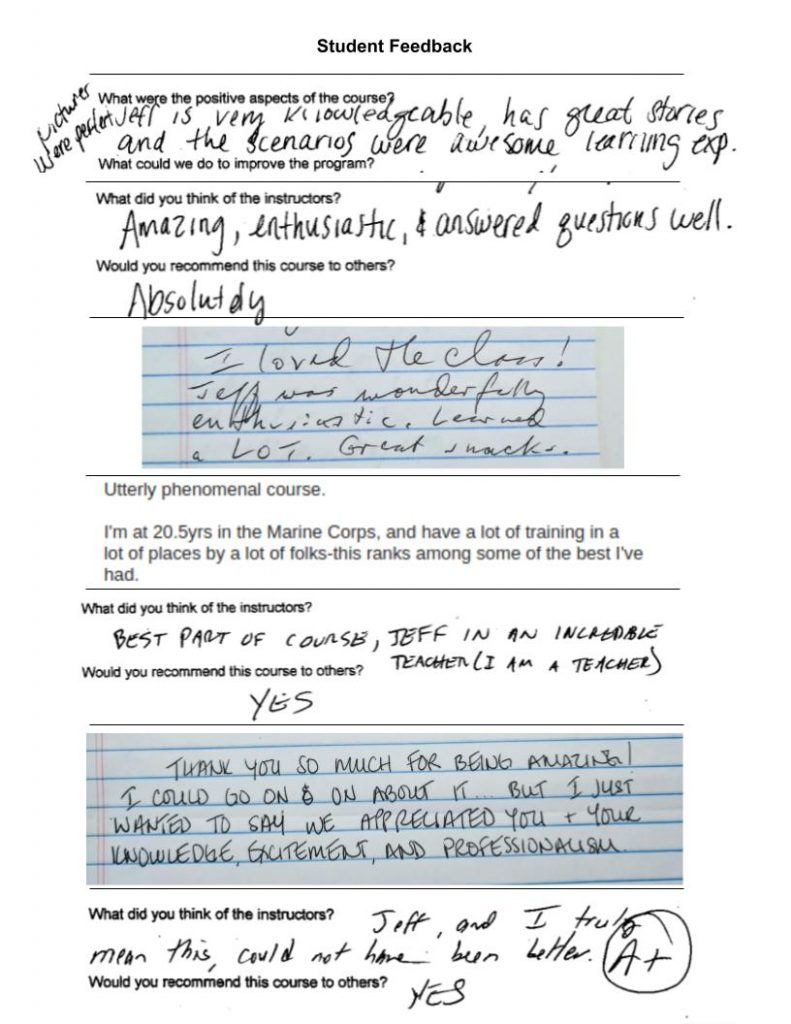 Student Feedback
What were the positive aspects of the course?
Pictures
were perfect
Jeff is very knowledgeable, has great stories
and the scenarios were awesome learning exp.
What could we do to improve the program?
What did you think of the instructors?
Amazing, enthusiastic, & answered questions well.
Would you recommend this course to others?
Absolutely
I loved the class!
Jeff was wonderfully
enthusiastic. Learned
a LOT. Great snacks.
Utterly phenomenal course.
I'm at 20.5yrs in the Marine Corps, and have a lot of training in a
lot of places by a lot of folks-this ranks among some of the best I've
had.
What did you think of the instructors?
BEST PART OF COURSE, JEFF IN AN INCREDABLE
TEACHER (I AM A TEACHER)
Would you recommend this course to others?
YES
THANK YOU SO MUCH FOR BEING AMAZING!
I COULD GO ON & ON ABOUT IT... BUT I JUST
WANTED TO SAY WE APPRECIATED YOU + YOUR
KNOWLEDGE, EXCITEMENT, AND PROFESSIONALISM.
What did you think of the instructors?
Jeff, and I truly
mean this, could not have been better. A+
Would you recommend this course to others?
YES